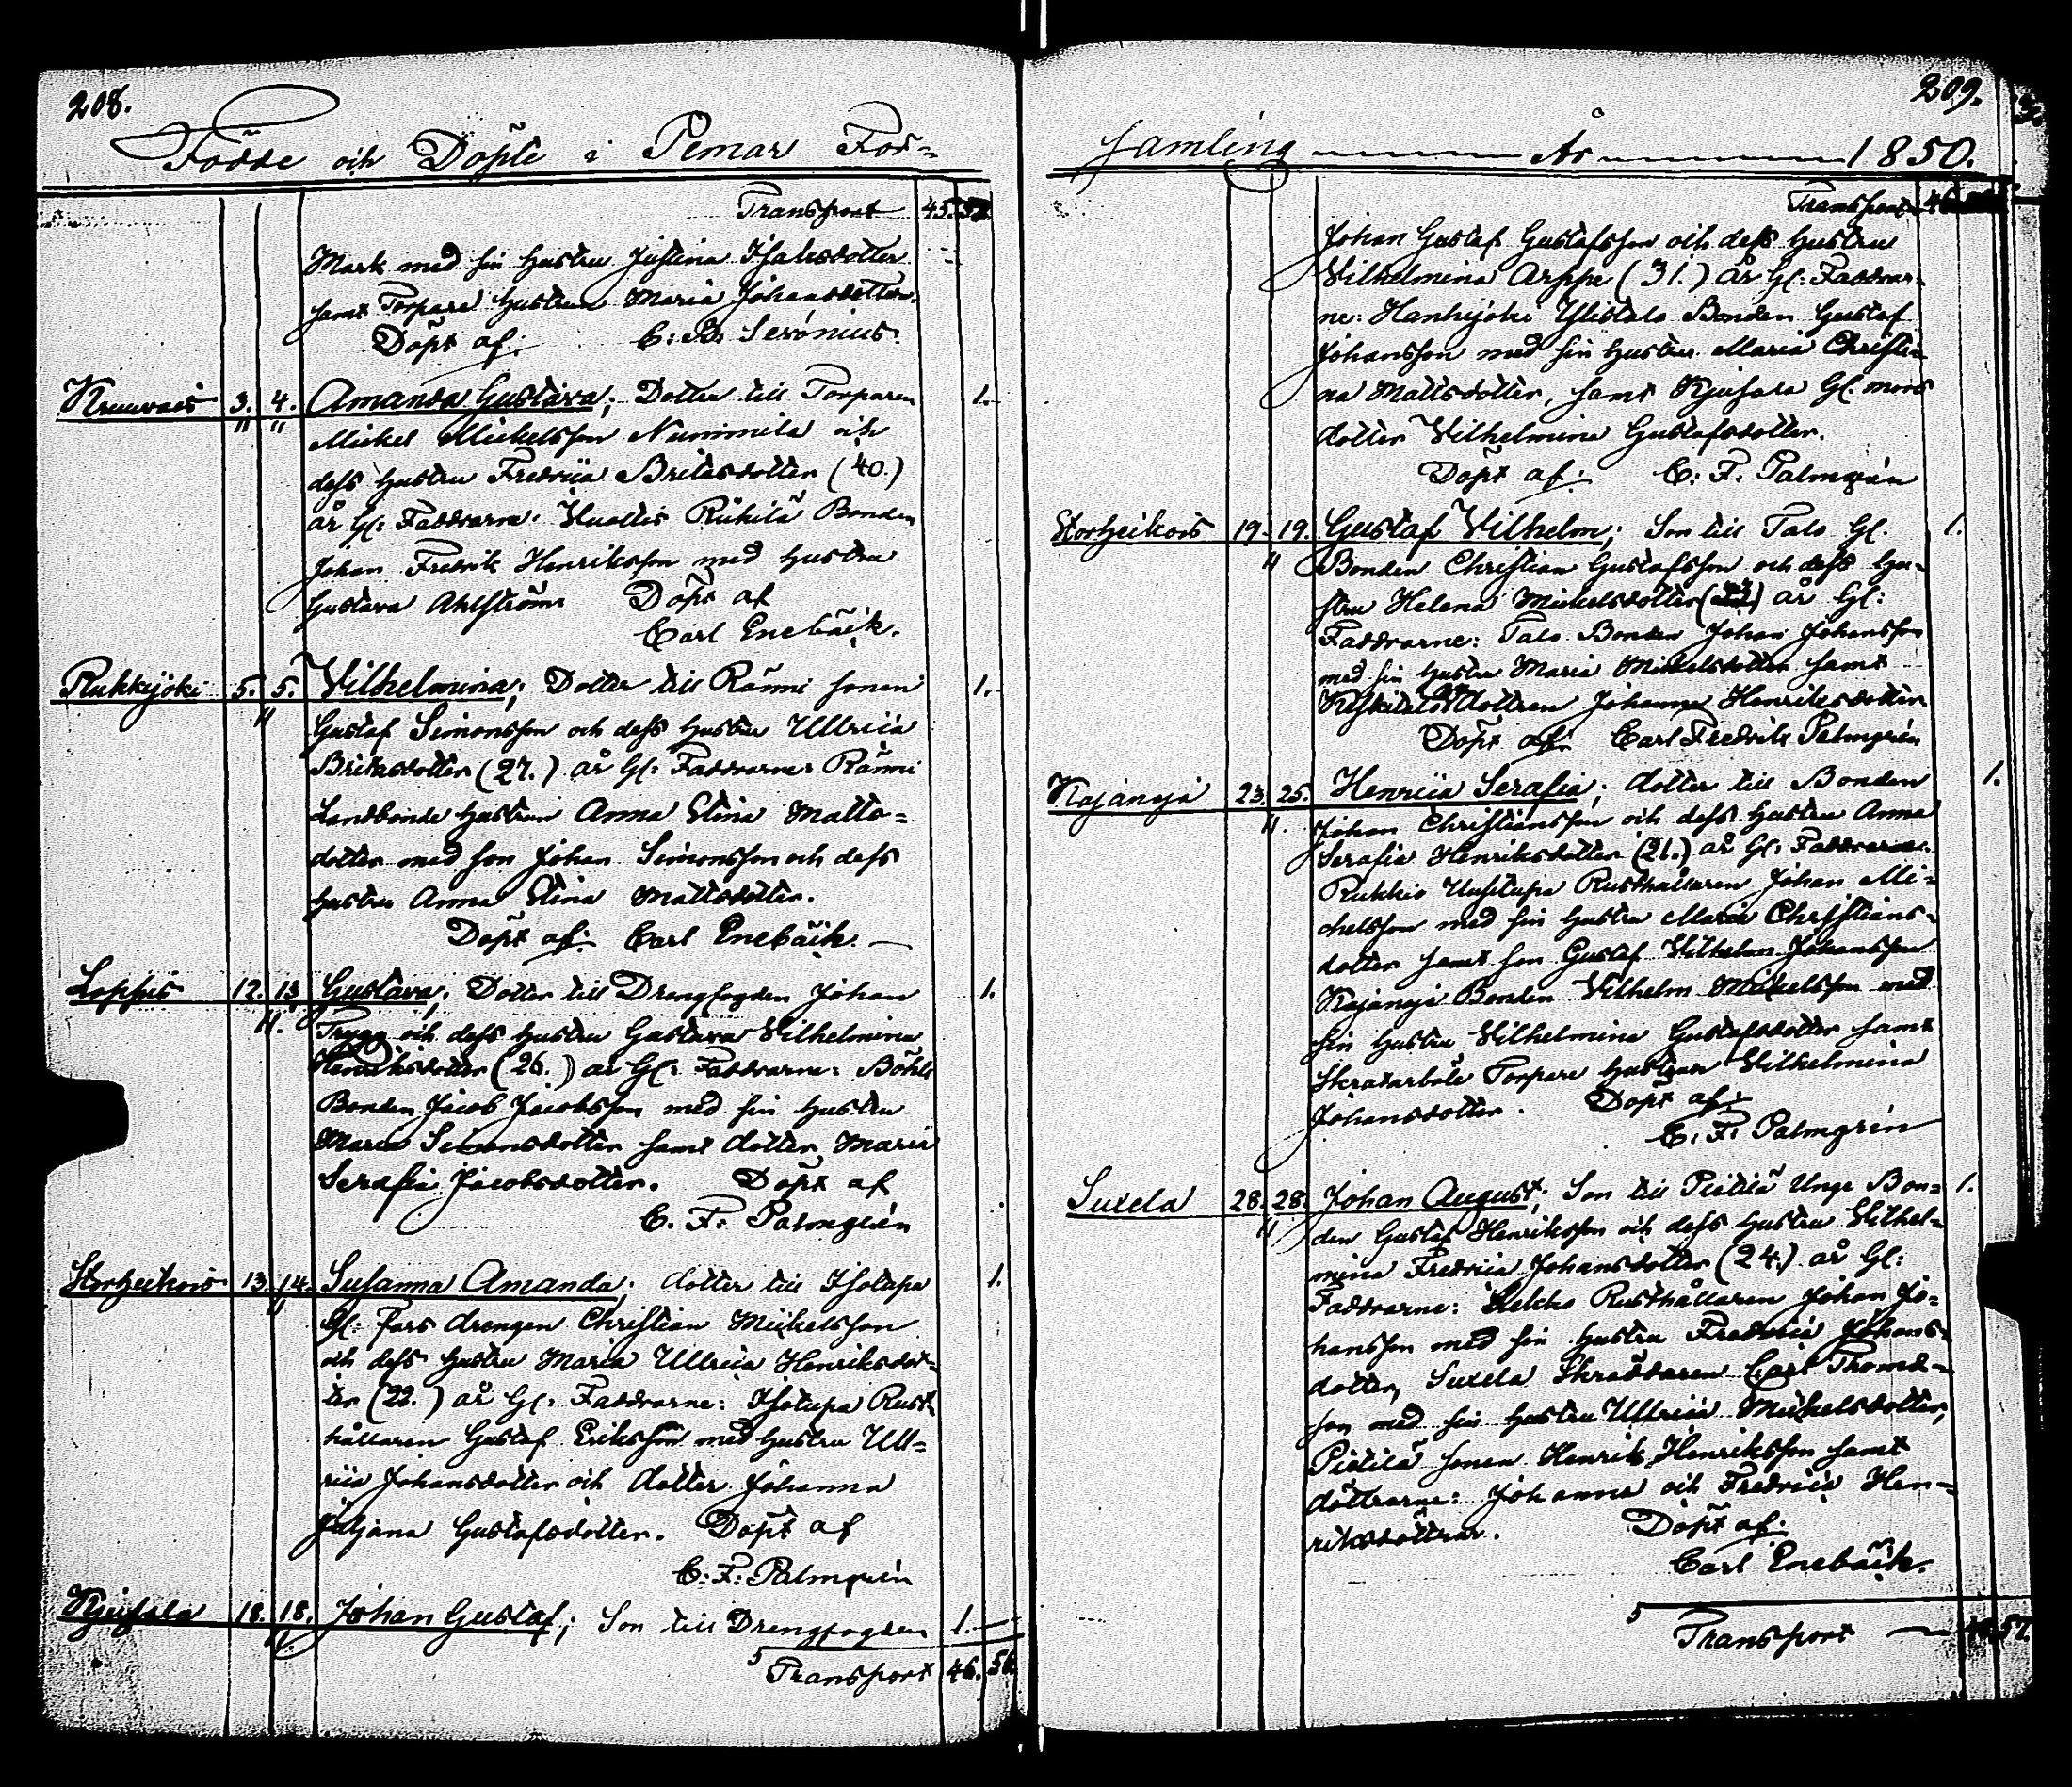 208.
Födde och Döpte i Pemar För=
Transport 45.
Mark med sin hustru Justina Isaksdotter
samt Torpare hustrun Maria Johansdotter.
Döpt af: C. B. Serónius.
3. 4. Amanda Gustava; Dotter till Torparen 1.
Mickel Mickelsson Nummila och
dess hustru Fredrica Britasdotter (40.)
år Gl: Faddrarne: Rükilä Bonden
Johan Fredrik Henriksson med hustru
Gustava Ahlström Döpt af
Carl Enebäck.
Rukkijoki 5. 5. Vilhelmina; Dotter till Rämi sonen 1.
"
Gustaf Simonsson och dess hustru Ullrica
Eriksdotter (27.) år Gl: Faddrarne: Rämi
Landbonde hustrun Anna Stina Matts=
dotter med son Johan Simonsson och dess
hustru Anna Stina Mattsdotter.
Döpt af: Carl Enebäck. —
Loppis 12. 13. Gustava; Dotter till Drengfogden Johan 1.
"
Trygg och dess hustru Gustava Vilhelmina
Henriksdotter (26.) år Gl: Faddrarne: Böhle
Bonden Jacob Jacobsson med sin hustru
Maria Simonsdotter samt dotter Maria
Serafia Jacobsdotter. Döpt af
C. F. Palmgrén
Storheikois 13. 14. Susanna Amanda; dotter till Isotupa 1.
"
Gl: fars drengen Christian Mickelsson
och dess hustru Maria Ullrica Henriksdot=
ter (22.) år Gl: Faddrarne: Isotupa Rust=
hållaren Gustaf Eriksson med hustru Ull=
rica Johansdotter och dotter Johanna
Juljana Gustafsdotter. Döpt af
C: F: Palmgrén
18. 18. Johan Gustaf; Son till Drengfogden 1.
5
Transport 46. 56.
209.
samling ——— År ——— 1850.
Transport 46.
Johan Gustaf Gustafsson och dess hustru
Vilhelmina Arppe (31.) år Gl: Faddrar=
ne: Hanhijoki Ylistalo Bonden Gustaf
Johansson med sin hustru Maria Christi=
na Mattsdotter, samt Gl. mors
dotter Vilhelmina Gustafsdotter.
Döpt af: C. F. Palmgrén
Storheikois 19. 19. Gustaf Vilhelm; Son till Talo Gl. 1.
"
Bonden Christian Gustafsson och dess hu=
stru Helena Mickelsdotter år Gl:
Faddrarne: Talo Bonden Johan Johansson
med sin hustru Maria Mickelsdotter samt
dottren Johanna Henriksdotter
Döpt af: Carl Fredrik Palmgrén
Kajanoja 23. 25. Henrica Serafia; dotter till Bonden 1.
"
Johan Christiansson och dess hustru Anna
Serafia Henriksdotter (21.) år Gl: Faddrarne:
Rukkis Uusitupa Rusthållaren Johan Mi=
chelsson med sin hustru Maria Christians=
dotter samt son Gustaf Vilhelm Johansson
Kajanoja Bonden Vilhelm Mickelsson med
sin hustru Vilhelmina Gustafsdotter samt
Skratarböle Torpare hustrun Vilhelmina
Johansdotter. Döpt af:
C. F. Palmgrén
Suxela 28. 28. Johan August; Son till Pietilä Unge Bon= 1.
"
den Gustaf Henriksson och dess hustru Vilhel=
mina Fredrica Johansdotter (24.) år Gl:
Faddrarne: Rusthållaren Johan Jo=
hansson med sin hustru Fredrica Johans=
dotter, Suxela Skräddaren Carl Thomas=
son med sin hustru Ullrica Mickelsdotter,
Pietilä sonen Henrik Henriksson samt
döttrarne: Johanna och Fredrica Hen=
riksdöttrar. Döpt af:
Carl Enebäck.
5
Transport — 57.